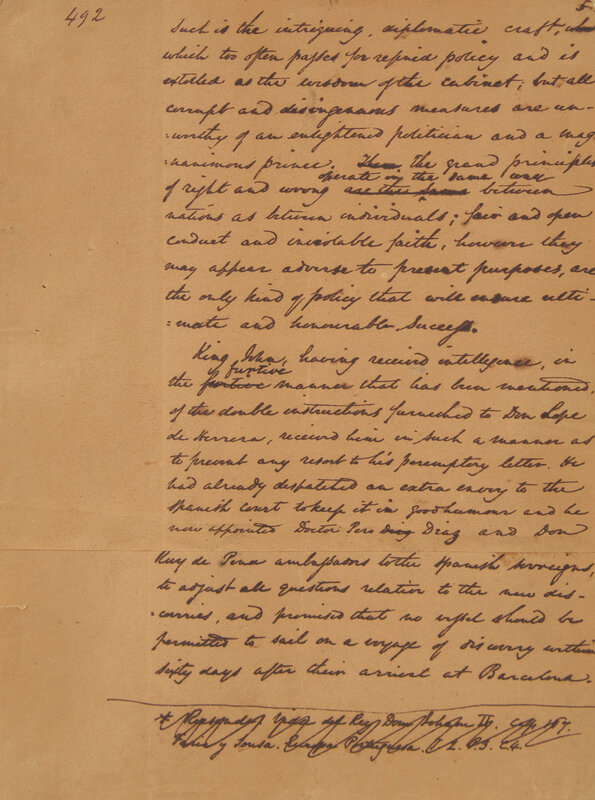 492
5
Such is the intriguing, diplomatic craft,
which too often passes for refined policy and is
extolled as the wisdom of the cabinet; but all
corrupt and disingenuous measures are un-
-worthy of an enlightened politician and a mag
-nanimous prince. the grand principles
operate in the same way
of right and wrong are the same between
nations as between individuals; fair and open
conduct and inviolable faith, however they
may appear adverse to present purposes, are
the only kind of policy that will ensure ulti-
-mate and honourable success.
King John, having received intelligence, in
furtive
the furtive manner that has been mentioned,
of the double instructions furnished to Don Lope
de Herrera, received him in such a manner as
to prevent any resort to his peremptory letter. He
had already despatched an extra envoy to the
Spanish court to keep it in good humour and he
now appointed Doctor Pero Diaz and Don
Ruy de Pena ambassadors to the Spanish sovereigns,
to adjust all questions relative to the new dis-
-coveries, and promised that no vessel should be
permitted to sail on a voyage of discovery within
sixty days after their arrival at Barcelona.
* Vida del Rey Dom Joham II.
Faria y Sousa. Europa Portuguesa.